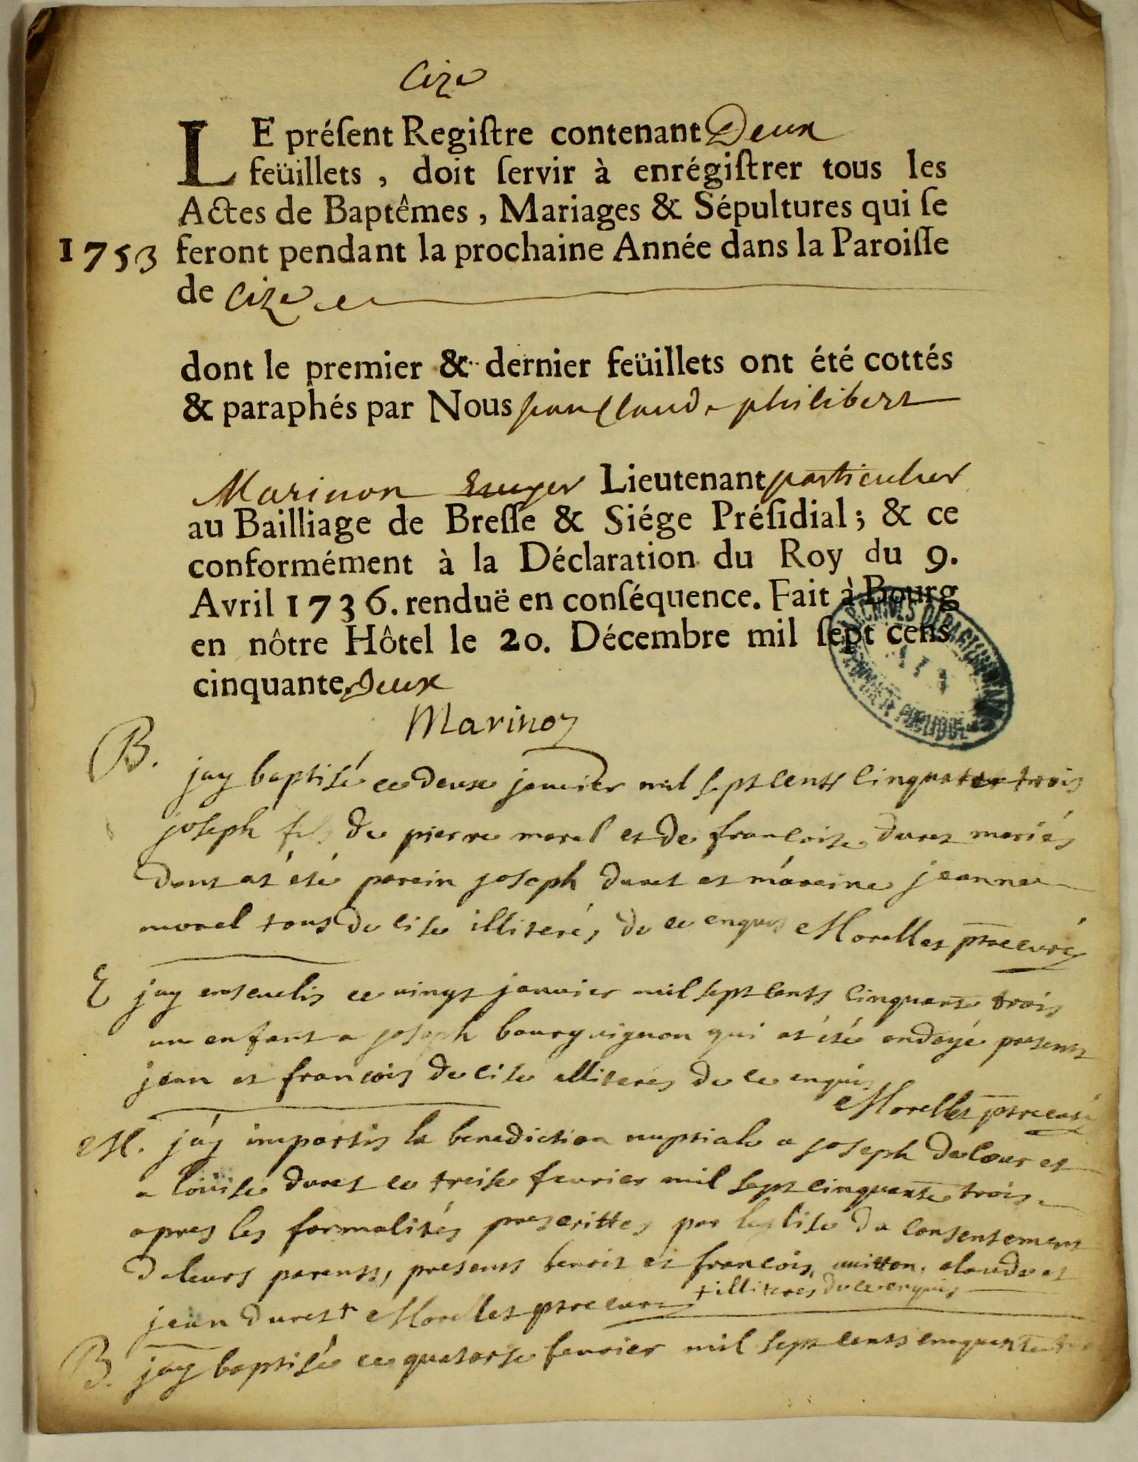 Cize
LE préſent Regiſtre contenant Deux
feüillets, doit ſervir à enrégiſtrer tous les
Actes de Baptêmes, Mariages & Sépultures qui ſe
1753 feront pendant la prochaine Année dans la Paroiſſe
de Cize
dont le premier & dernier feüillets ont été cottés
& paraphés par Nous jean Claude philibert
Marinon Lieutenant particulier
au Bailliage de Breſſe & Siége Préſidial; & ce
conformément à la Déclaration du Roy du 9.
Avril 1736. renduë en conſéquence. Fait à Bourg
en nôtre Hôtel le 20. Décembre mil ſept cens
cinquante Deux
Marinon
B. jay baptisé ce deux janvier mil sept cents cinquante trois
joseph fils de pierre morel et de francoise duret mariés
dont at été parein joseph duret et mareine jeanne
morel tous de cise illiterés de ce enquis Morellet ptre curé
E jay enseuelis ce vingt janvier mil sept cents cinquante trois
un enfant a joseph bourguignon qui at été ondoyé presents
jean et francois de cise illiterés de ce enquis
Morellet ptre curé
M. j'ay impartis la benediction nuptiale a joseph delour et
a loüise duret ce treise feurier mil sept cinquante trois
apres les formalités prescrittes par leglise du consentement
de leurs parents, presents benoit et francois claude et
jean duret + Morellet ptre curé + illiteres de ce enquis
B. jay baptisé ce quatorse feurier mil sept cents cinquante
ARCHIVES DEPARTEMENTALES
PROPRIETE PUBLIQUE